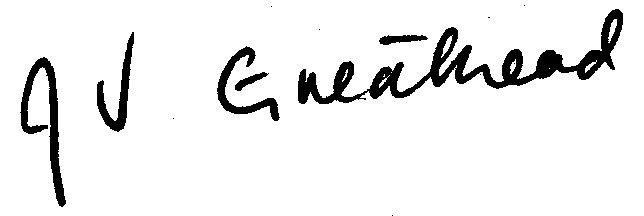 JV Greathead